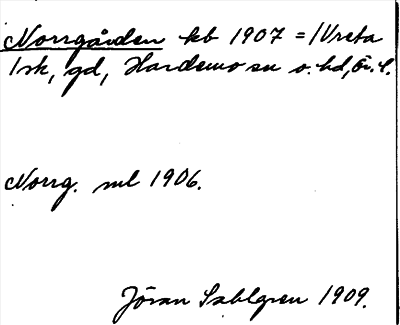 Norrgården kb 1907 = /Vreta
1sk, gd, Hardemo sn o. hd, Ör. l.
Norrg. ml 1906.
Jöran Sahlgren 1909.